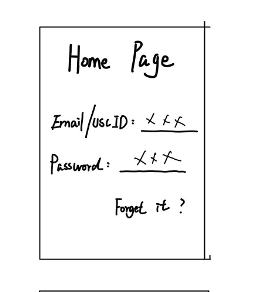 Home Page
Email/USC ID: xxx
Password: xxx
Forget it?